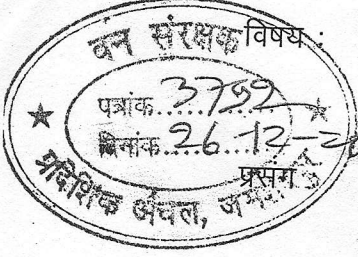 वन संरक्षक
विषय :
पत्रांक.....3752
दिनांक...26.12-2
प्रसंग
प्रादेशिक अंचल,